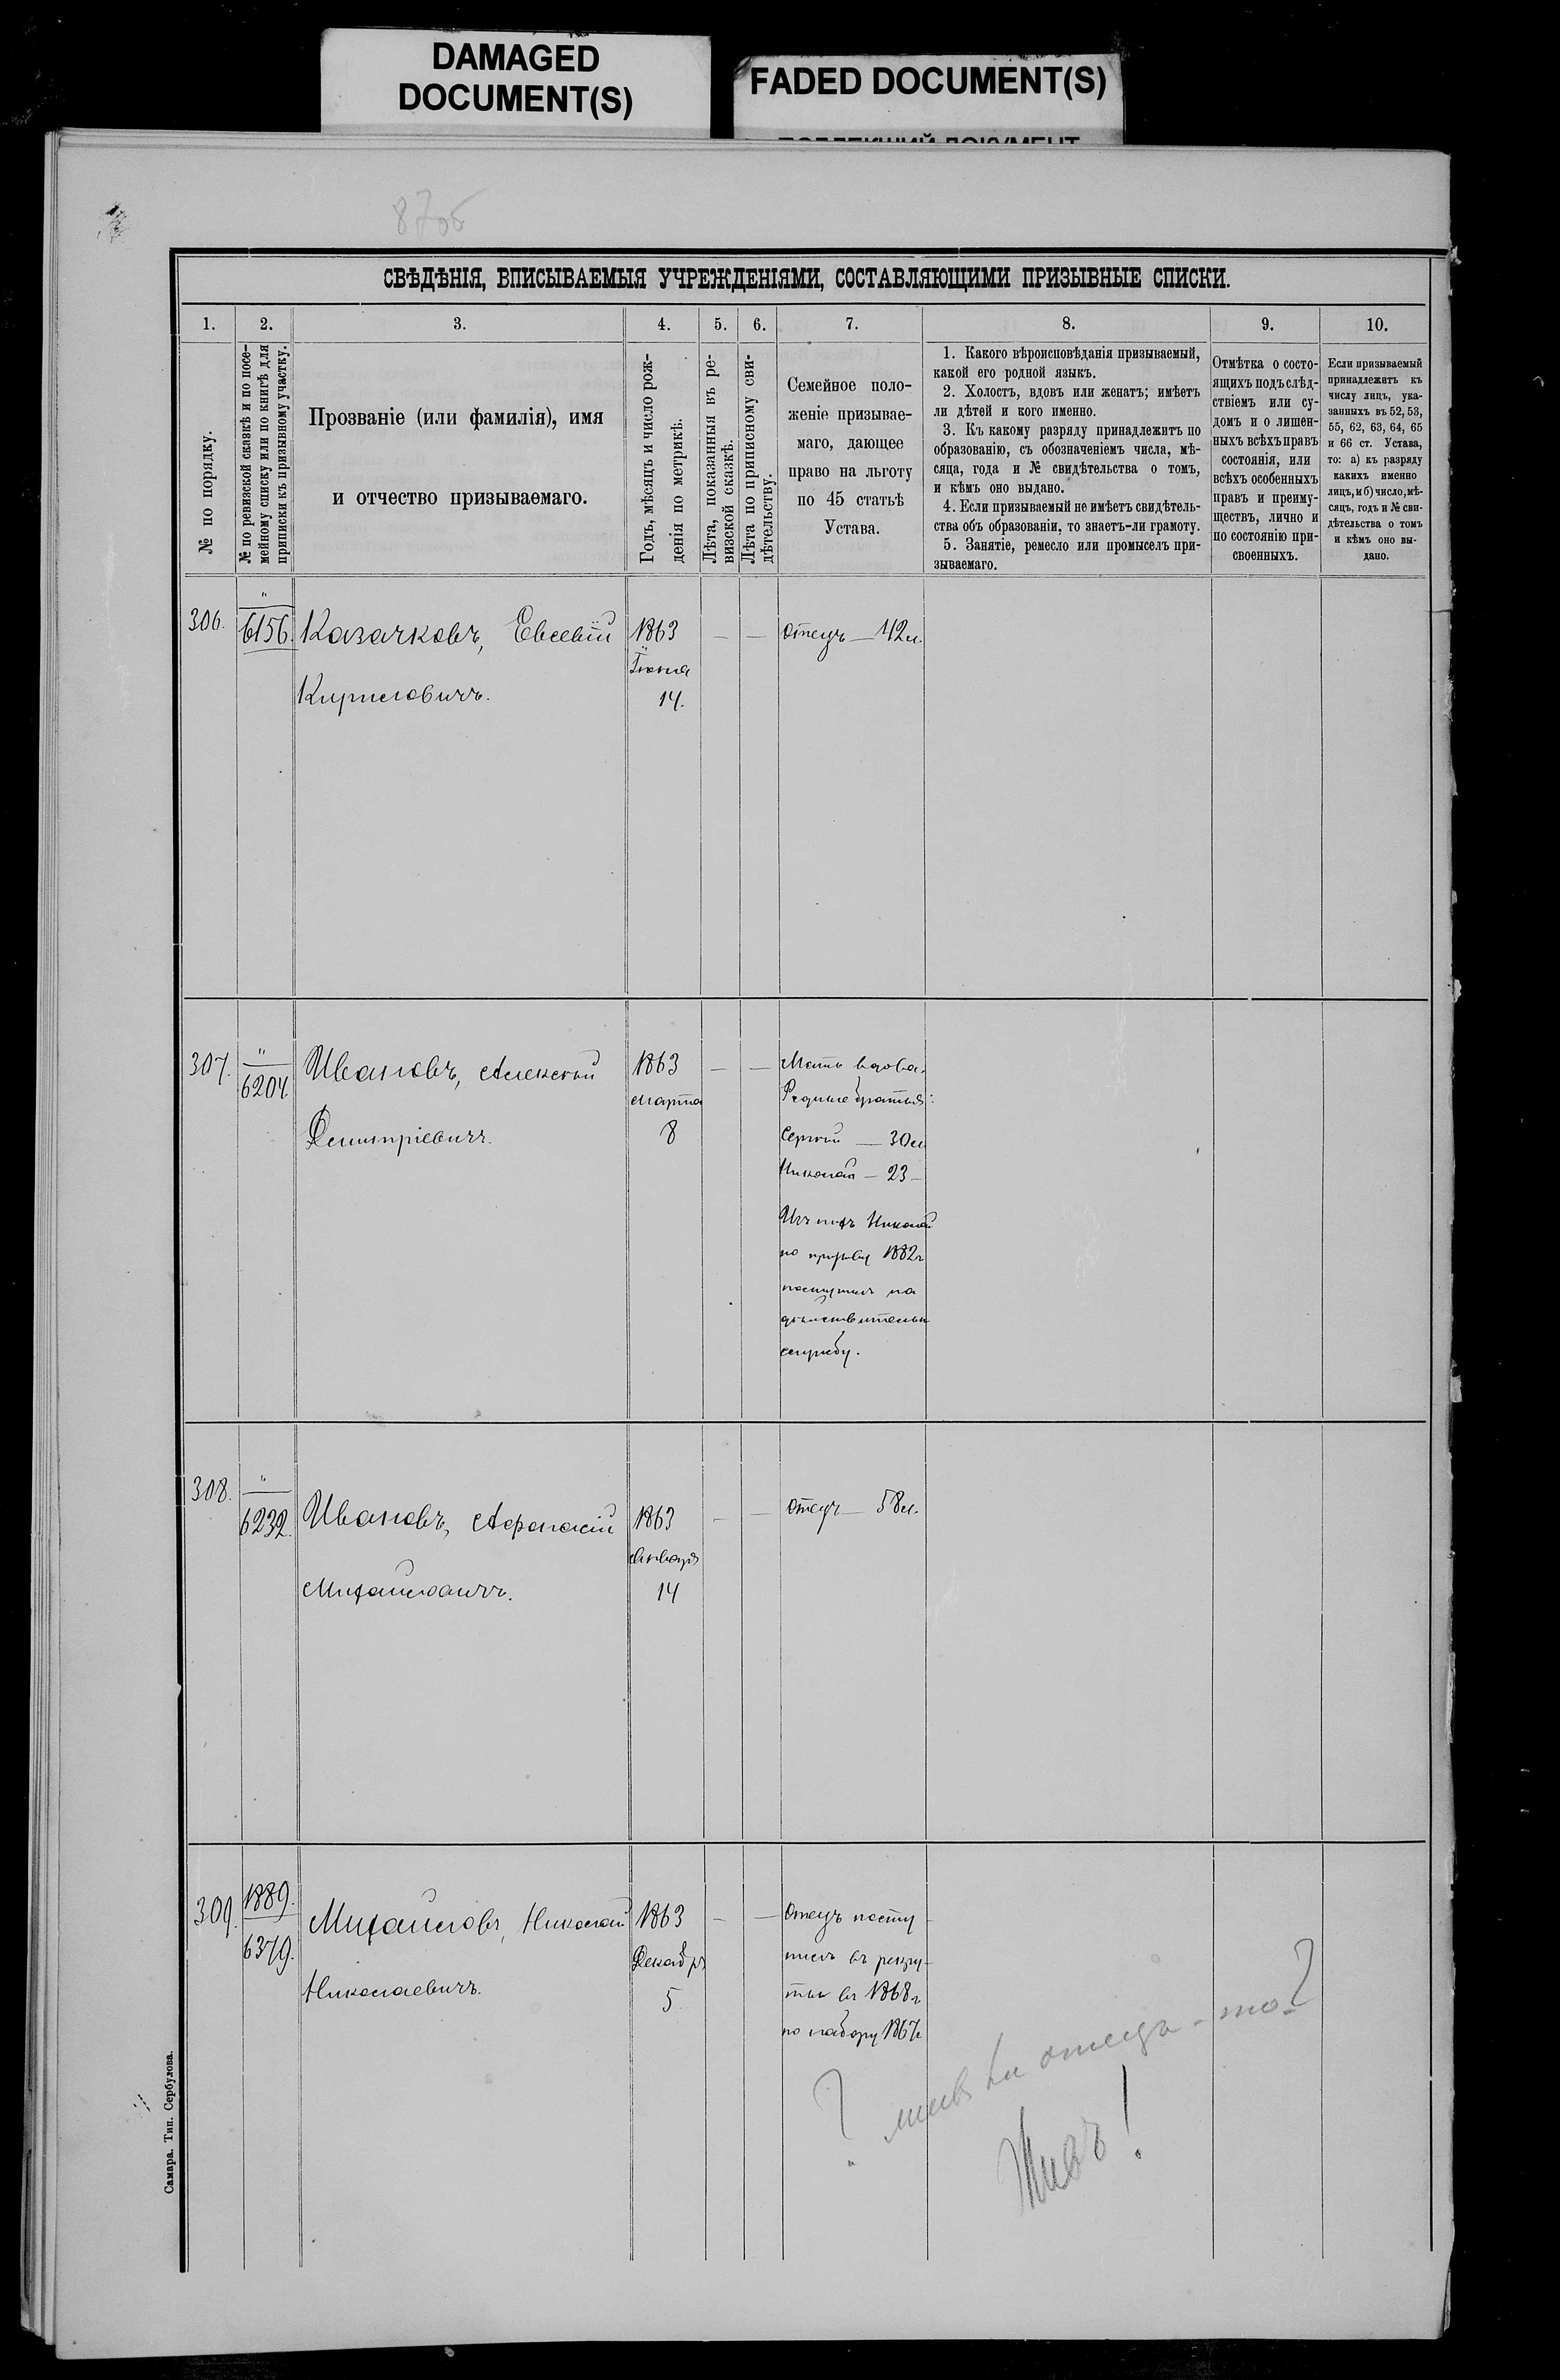 DAMAGED
DOCUMENT(S)
FADED DOCUMENT(S)
87об
СВѢДѢНІЯ, ВПИСЫВАЕМЫЯ УЧРЕЖДЕНІЯМИ, СОСТАВЛЯЮЩИМИ ПРИЗЫВНЫЕ СПИСКИ.
1. 2. 3. 4. 5. 6. 7. 8. 9. 10.
№ по порядку.
№ по ревизской сказкѣ и по посе-
мейному списку или по книгѣ для
приписки къ призывному участку.
Прозваніе (или фамилія), имя
и отчество призываемаго.
Годъ, мѣсяцъ и число рож-
денія по метрикѣ.
Лѣта, показанныя въ ре-
визской сказкѣ.
Лѣта по приписному сви-
дѣтельству.
Семейное поло-
женіе призывае-
маго, дающее
право на льготу
по 45 статьѣ
Устава.
1. Какого вѣроисповѣданія призываемый,
какой его родной языкъ.
2. Холостъ, вдовъ или женатъ; имѣетъ
ли дѣтей и кого именно.
3. Къ какому разряду принадлежитъ по
образованію, съ обозначеніемъ числа, мѣ-
сяца, года и № свидѣтельства о томъ,
и кѣмъ оно выдано.
4. Если призываемый не имѣетъ свидѣтель-
ства объ образованіи, то знаетъ-ли грамоту.
5. Занятіе, ремесло или промыселъ при-
зываемаго.
Отмѣтка о состо-
ящихъ подъ слѣд-
ствіемъ или су-
домъ и о лишен-
ныхъ всѣхъ правъ
состоянія, или
всѣхъ особенныхъ
правъ и преиму-
ществъ, лично и
по состоянію при-
своенныхъ.
Если призываемый
принадлежитъ къ
числу лицъ, ука-
занныхъ въ 52, 53,
55, 62, 63, 64, 65
и 66 ст. Устава,
то: а) къ разряду
какихъ именно
лицъ, и б) число, мѣ-
сяцъ, годъ и № сви-
дѣтельства о томъ
и кѣмъ оно вы-
дано.
306. " 6156. Казачковъ, Евсевій 1863 — — Отецъ — 42 л.
Кириловичъ. Іюня
14.
307. " 6204 Ивановъ, Алексѣй 1863 — — Мать вдова.
Марта Родные братья:
Дмитріевичъ. 8 Сергѣй — 30 л
Николай — 23 —
Изъ нихъ Николай
по призыву 1882 г
поступилъ на
дѣйствительн
службу.
308. " 6232. Ивановъ, Афанасій 1863 — — Отецъ — 58 л.
Января
Михайловичъ. 14
309. 1889. 6379. Михайловъ, Николай 1863 — — Отецъ посту
Декабря пилъ въ рекру-
Николаевичъ. 5 ты въ 1868 г
по набору 1867 г
? живъ ли отецъ-то?
Живъ!
Самара. Тип. Сербулова.